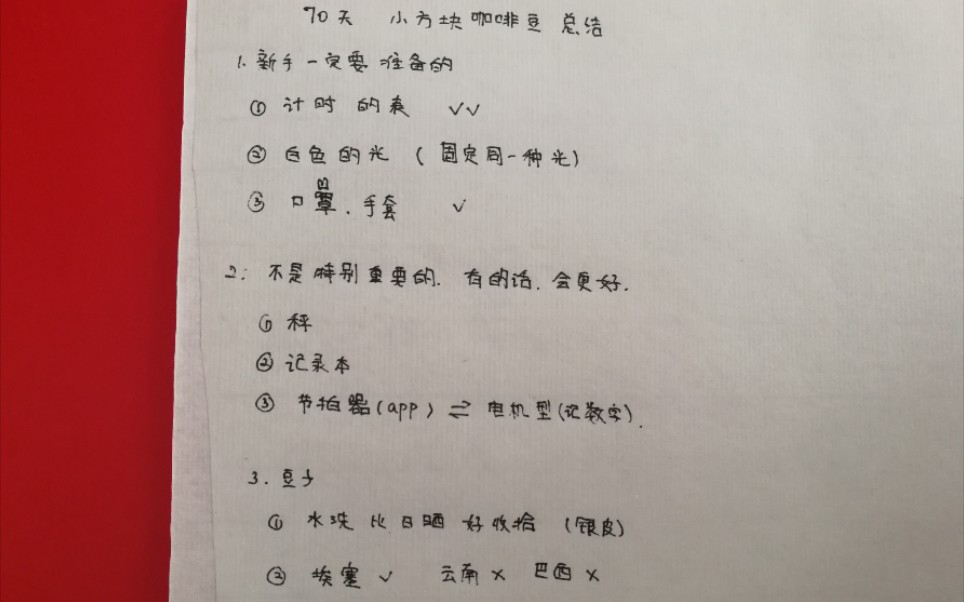 70天 小方块咖啡豆总结
1. 新手一定要准备的
① 计时的表 ✓✓
② 白色的光 (固定同一种光)
③ 口罩、手套 ✓
2: 不是特别重要的. 有的话. 会更好.
① 秤
② 记录本
③ 节拍器(app) ⇌ 电机型(记数字).
3. 豆子
① 水洗比日晒好收拾 (银皮)
② 埃塞 ✓ 云南 × 巴西 ×